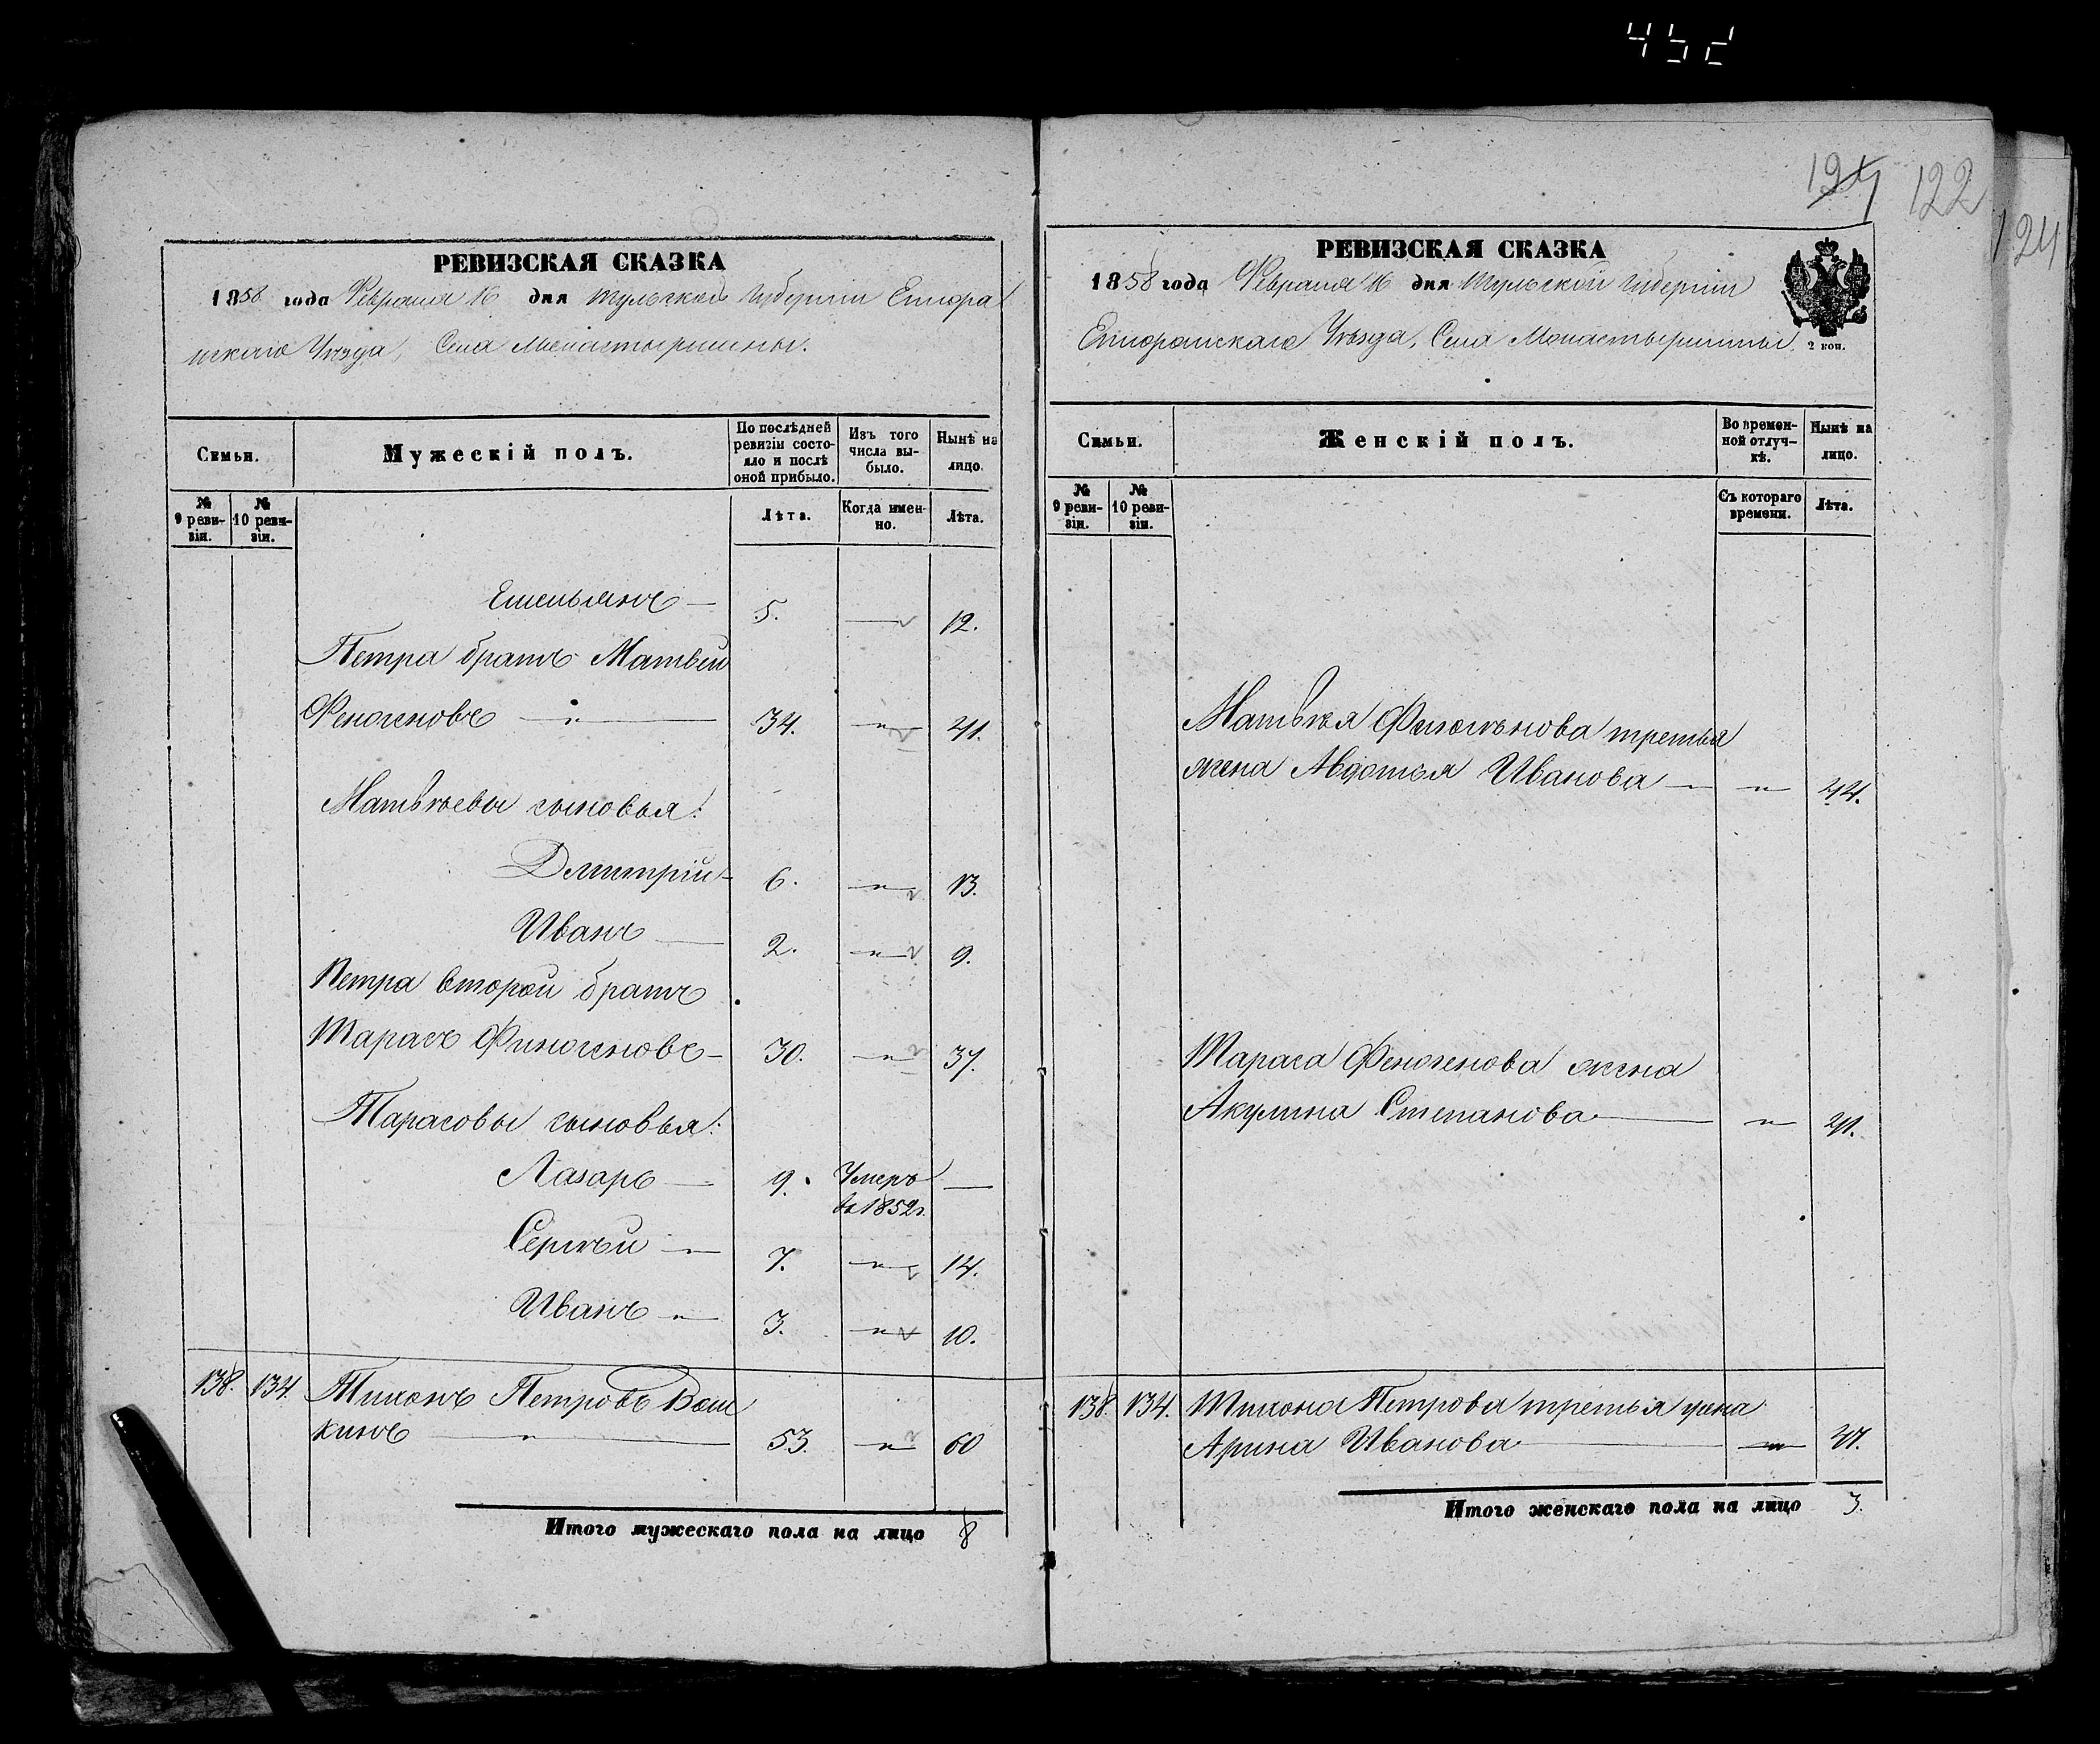 452
124 122
124
РЕВИЗСКАЯ СКАЗКА
1858 года Февраля 16 дня Тульской Губернии Епифа
нскаго Уѣзда, Села Монастыршины.
Семьи.
Мужескій полъ.
По послѣдней ревизіи состояло и послѣ оной прибыло.
Изъ того числа выбыло.
Нынѣ на лицо.
№ 9 ревизіи.
№ 10 ревизіи.
Лѣта.
Когда именно.
Лѣта.
Емельянъ — 5. — 12.
Петра братъ Матвей
Феногеновъ — " — 34. — " — 41.
Матвѣевы сыновья:
Дмитрій — 6. — " — 13.
Иванъ — 2. — " — 9.
Петра второй братъ
Тарасъ Финогеновъ — 30. — " — 37.
Тарасовы сыновья:
Лазарь — 9. Умеръ —
въ 1852 г.
Сергѣй — " — 7. — " — 14.
Иванъ — " — 3. — " — 10.
138. 134. Тихонъ Петровъ Вош
кинъ — " — 53. — " — 60
Итого мужескаго пола на лицо 8
РЕВИЗСКАЯ СКАЗКА
1858 года Февраля 16 дня Тульской Губернии
Епифанскаго Уѣзда, Села Монастыршины.
2 коп.
Семьи.
Женскій полъ.
Во временной отлучкѣ.
Нынѣ на лицо.
№ 9 ревизіи.
№ 10 ревизіи.
Съ котораго времени.
Лѣта.
Матвѣя Финогѣнова третья
жена Авдотья Иванова — " — — " — 44.
Тараса Феногенова жена
Акулина Степанова — — " — 41.
138. 134. Тихона Петрова третья жена
Арина Иванова — — " — 47.
Итого женскаго пола на лицо 3.